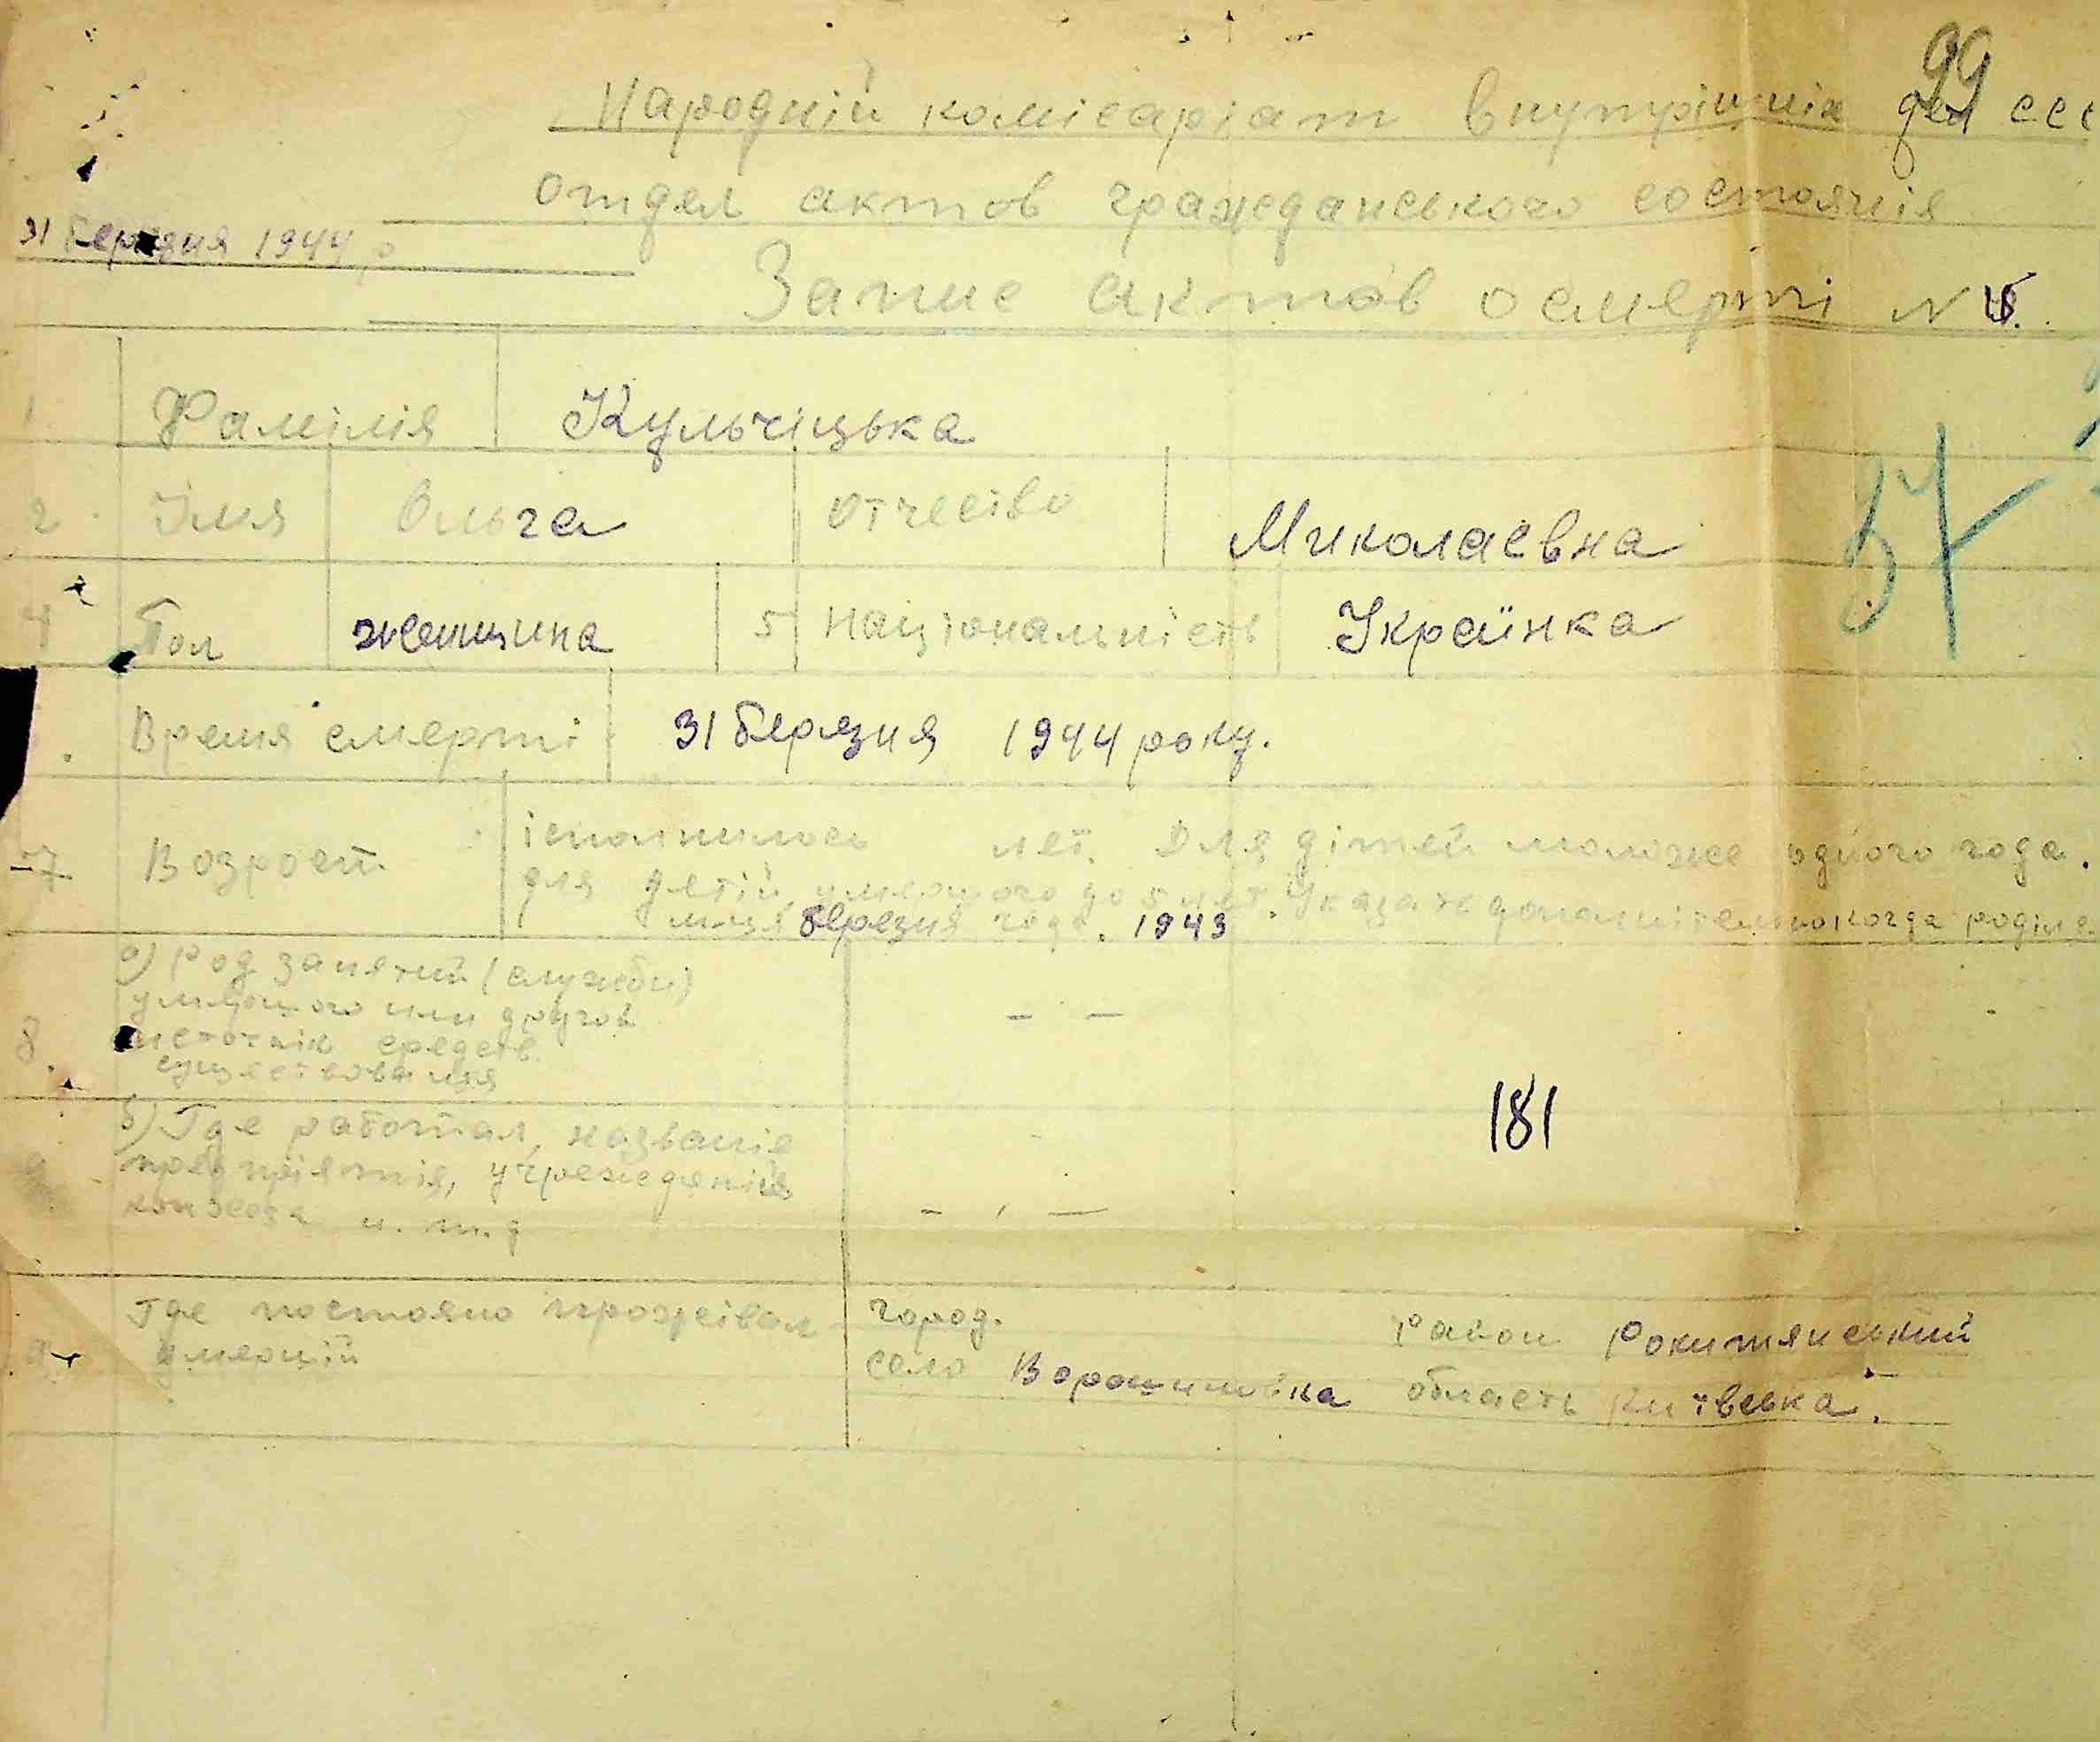 99
Народній комісаріат внутрішніх дел ССС
отдел актов гражеданського состоянія
31 березня 1944 р
Запис актов о смерті N
1 Фамілія Кульчіцька
2 Імя Ольга отчество Миколаєвна
57
4 Пол женщина 5 Національність Украінка
Время смерті 31 березня 1944 року.
7 Возрост ісполнилось лет. Для дітей моложе одного года.
для детій умершого до 5 лет. Указать дополнітельно когда роділс
м-ця березня года. 1943
а) Род занятий (служби)
умершого или другой
8. источнік средств
существования
181
б) Где работал, названіе
предпріятія, учреждения
колхоза и. т. д
Где постояно прожівал город. район Рокитянський
умерший село Ворошиловка область Київська.